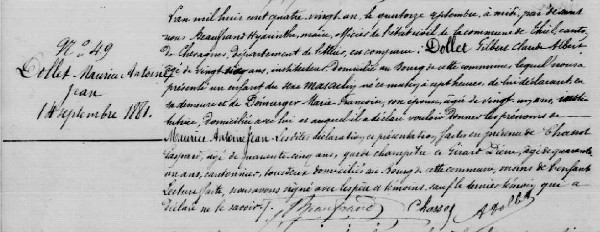 N° 49
Dollet Maurice Antoine
Jean
14 septembre 1881.
L'an mil huit cent quatre-vingt-un, le quatorze septembre, à midi, par devant
nous Beaufrand Hyacinthe, maire, officier de l'état civil de la commune de canton
de Chevagnes, département de l'Allier, est comparu: Dollet Gilbert Claude Albert
âgé de vingt ans, instituteur domicilié au Bourg de cette commune, lequel nous a
présenté un enfant du sexe masculin, né ce matin à sept heures, de lui déclarant, en
sa demeure et de Marie Françoise, son épouse, âgée de vingt-un ans,
domiciliée avec lui et auquel il a déclaré vouloir donner les prénoms de
Maurice Antoine Jean. Lesdites déclaration et présentation faites en présence de Chassot
Gaspard, âgé de quarante-cinq ans, garde champêtre et Gérard Pierre, âgé de quarante-
un ans, cantonnier, tous deux domiciliés au Bourg de cette commune,
Lecture faite, nous avons signé avec le père et témoins, sauf le dernier témoin qui a
déclaré ne le savoir. Beaufrand Chassot A Dollet